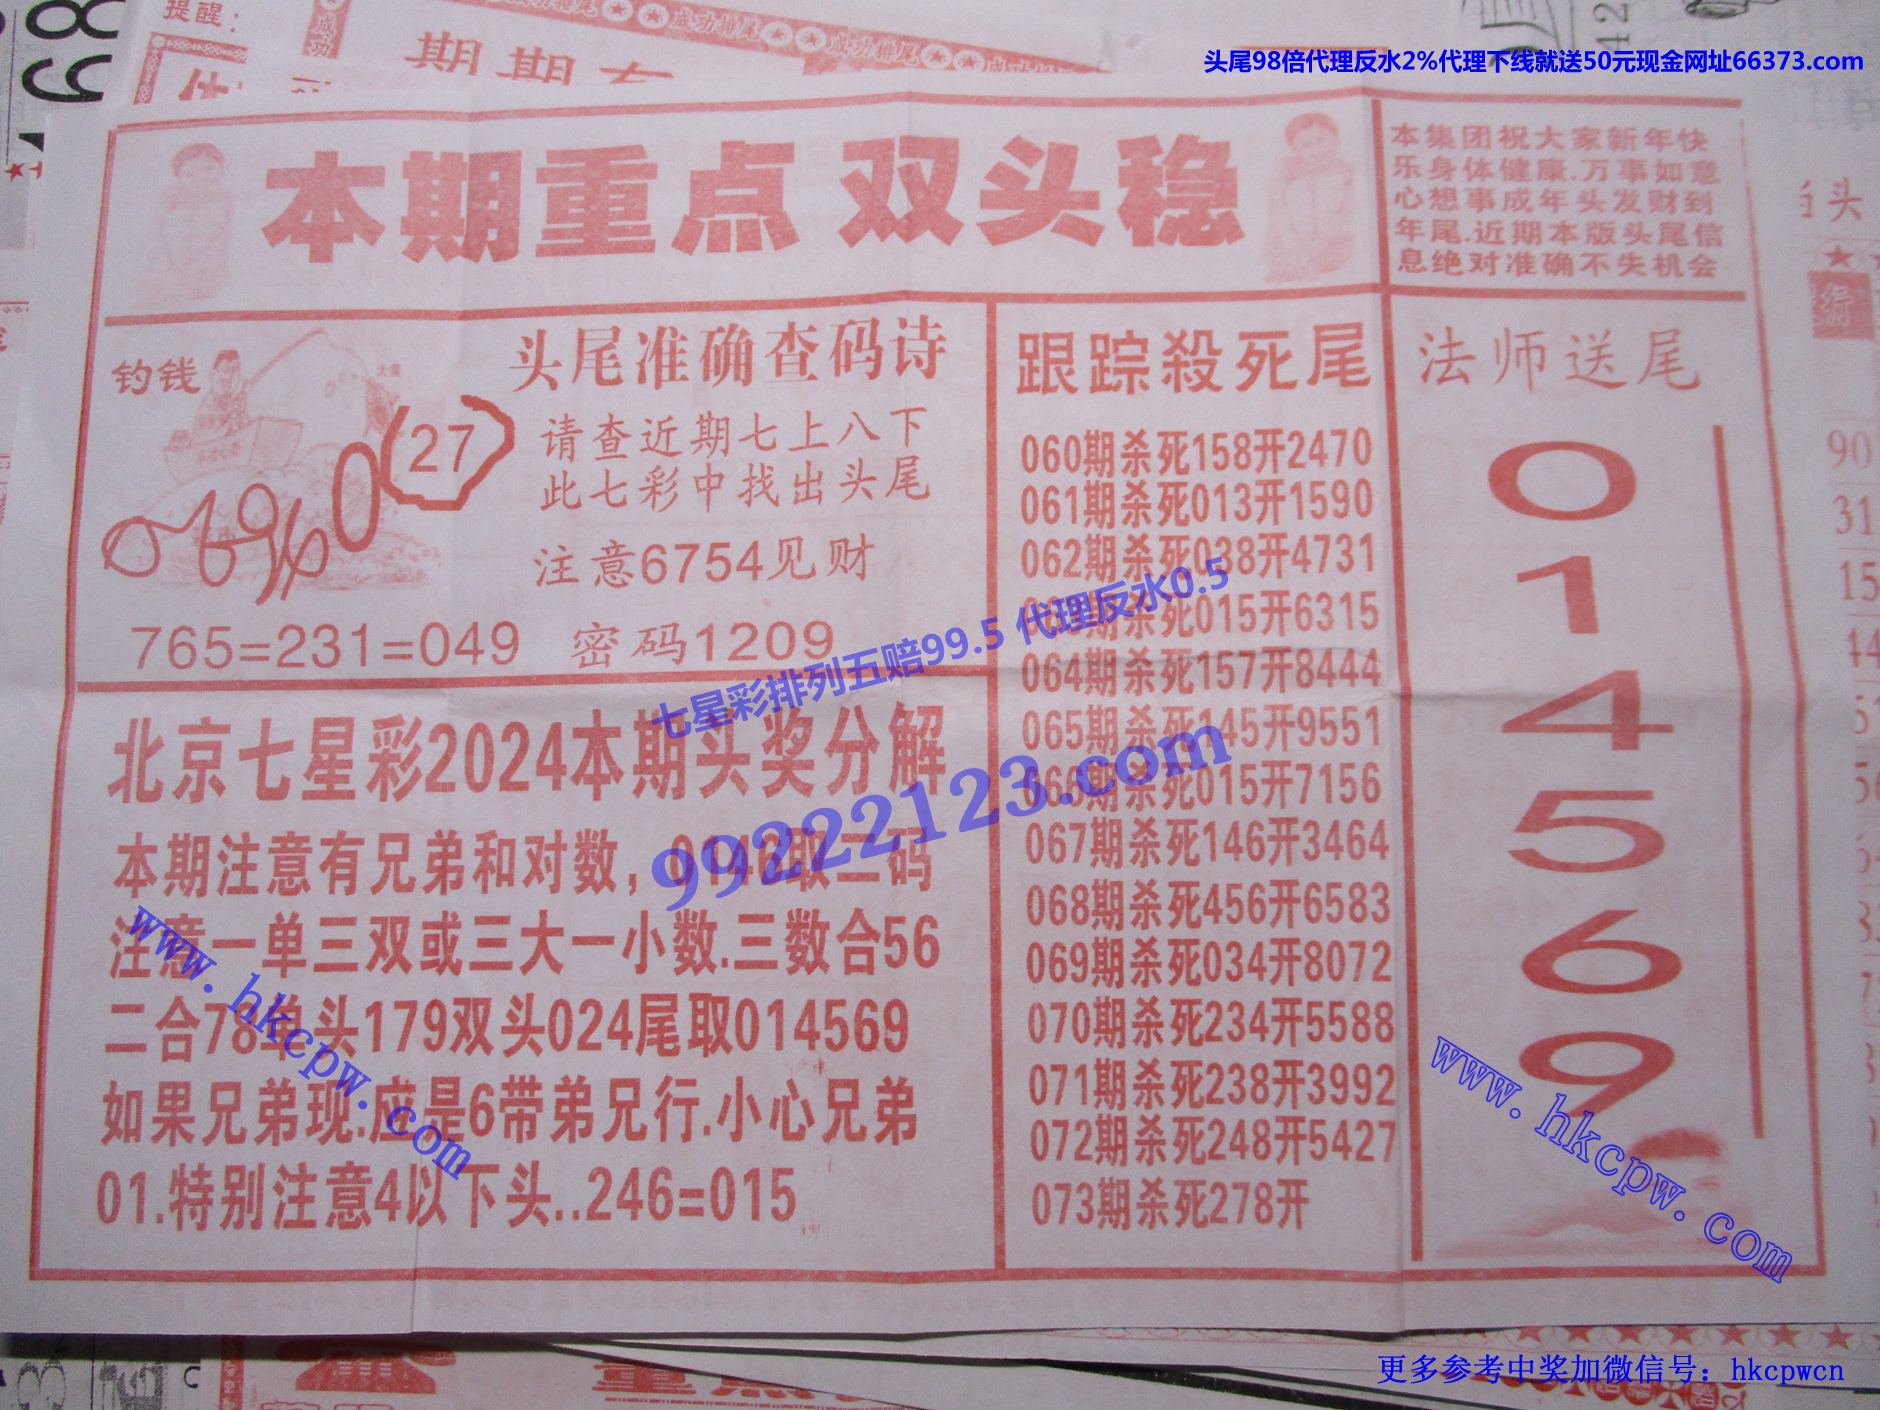 头尾98倍代理反水2%代理下线就送50元现金网址66373.com
提醒:
成功排尾
成功排尾
本期重点 双头稳
本集团祝大家新年快
乐身体健康.万事如意
心想事成年头发财到
年尾.近期本版头尾信
息绝对准确不失机会
钓钱
27
头尾准确查码诗
请查近期七上八下
此七彩中找出头尾
注意6754见财
765=231=049 密码1209
跟踪殺死尾
060期杀死158开2470
061期杀死013开1590
062期杀死038开4731
063期杀死015开6315
064期杀死157开8444
065期杀死145开9551
066期杀死015开7156
067期杀死146开3464
068期杀死456开6583
069期杀死034开8072
070期杀死234开5588
071期杀死238开3992
072期杀死248开5427
073期杀死278开
法师送尾
0
1
4
5
6
9
北京七星彩2024本期头奖分解
本期注意有兄弟和对数,0146取二码
注意一单三双或三大一小数.三数合56
二合78单头179双头024尾取014569
如果兄弟现.应是6带弟兄行.小心兄弟
01.特别注意4以下头..246=015
七星彩排列五赔99.5 代理反水0.5
99222123.com
www.hkcpw.com
www.hkcpw.com
更多参考中奖加微信号：hkcpwcn